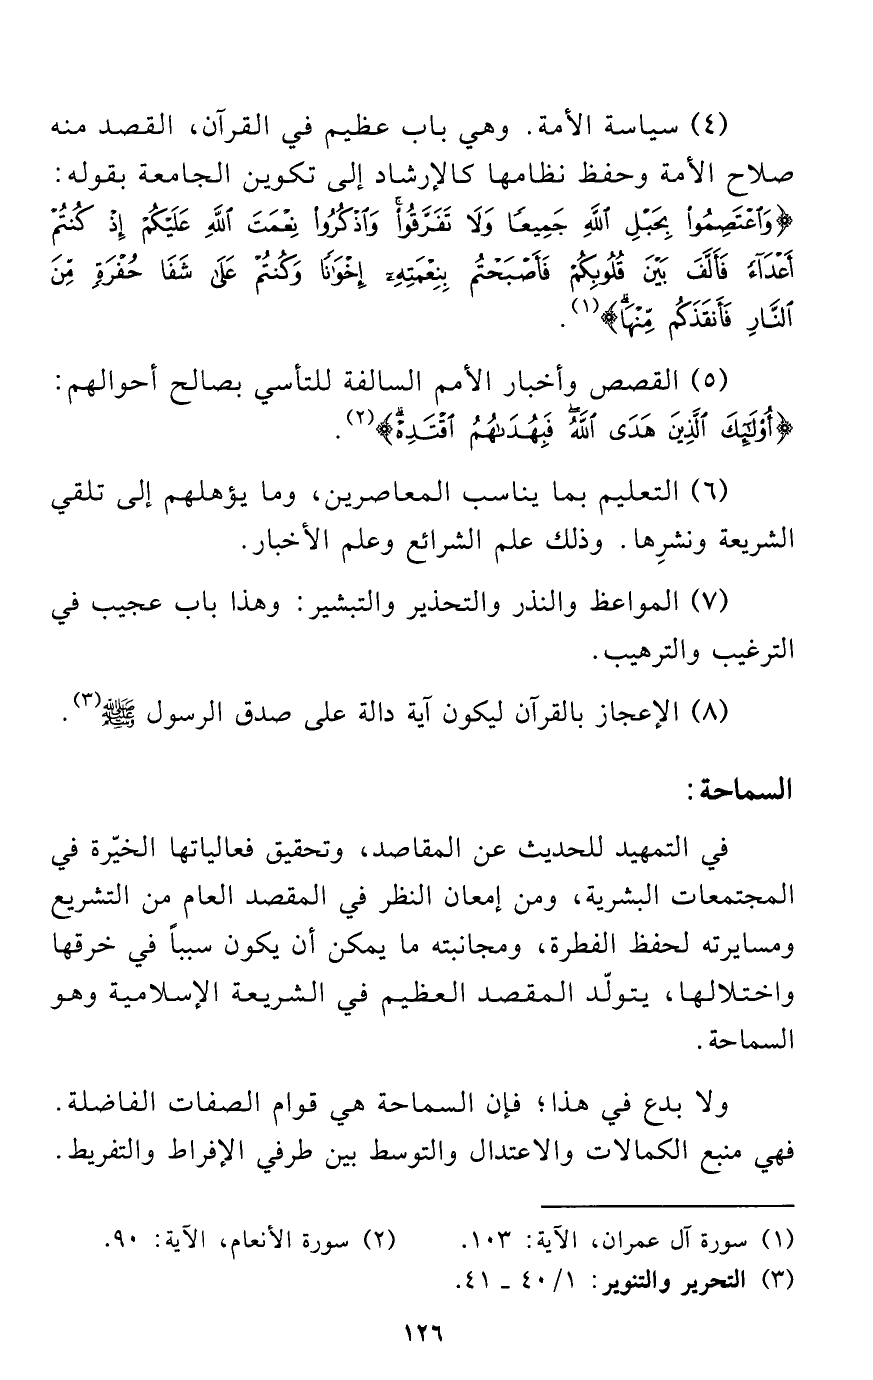 (٤) سياسة الأمة. وهي باب عظيم في القرآن، القصد منه
صلاح الأمة وحفظ نظامها كالإرشاد إلى تكوين الجامعة بقوله:
﴿وَٱعۡتَصِمُواْ بِحَبۡلِ ٱللَّهِ جَمِيعٗا وَلَا تَفَرَّقُواْۚ وَٱذۡكُرُواْ نِعۡمَتَ ٱللَّهِ عَلَيۡكُمۡ إِذۡ كُنتُمۡ
أَعۡدَآءٗ فَأَلَّفَ بَيۡنَ قُلُوبِكُمۡ فَأَصۡبَحۡتُم بِنِعۡمَتِهِۦٓ إِخۡوَٰنٗا وَكُنتُمۡ عَلَىٰ شَفَا حُفۡرَةٖ مِّنَ
ٱلنَّارِ فَأَنقَذَكُم مِّنۡهَاۗ﴾(١).
(٥) القصص وأخبار الأمم السالفة للتأسي بصالح أحوالهم:
﴿أُوْلَٰٓئِكَ ٱلَّذِينَ هَدَى ٱللَّهُۖ فَبِهُدَىٰهُمُ ٱقۡتَدِهۡۗ﴾(٢).
(٦) التعليم بما يناسب المعاصرين، وما يؤهلهم إلى تلقي
الشريعة ونشرِها. وذلك علم الشرائع وعلم الأخبار.
(٧) المواعظ والنذر والتحذير والتبشير: وهذا باب عجيب في
الترغيب والترهيب.
(٨) الإعجاز بالقرآن ليكون آية دالة على صدق الرسول ﷺ(٣).
السماحة:
في التمهيد للحديث عن المقاصد، وتحقيق فعالياتها الخيّرة في
المجتمعات البشرية، ومن إمعان النظر في المقصد العام من التشريع
ومسايرته لحفظ الفطرة، ومجانبته ما يمكن أن يكون سبباً في خرقها
واختلالها، يتولّد المقصد العظيم في الشريعة الإسلامية وهو
السماحة.
ولا بدع في هذا؛ فإن السماحة هي قوام الصفات الفاضلة.
فهي منبع الكمالات والاعتدال والتوسط بين طرفي الإفراط والتفريط.
(١) سورة آل عمران، الآية: ١٠٣. (٢) سورة الأنعام، الآية: ٩٠.
(٣) التحرير والتنوير: ١/ ٤٠ ـ ٤١.
١٢٦